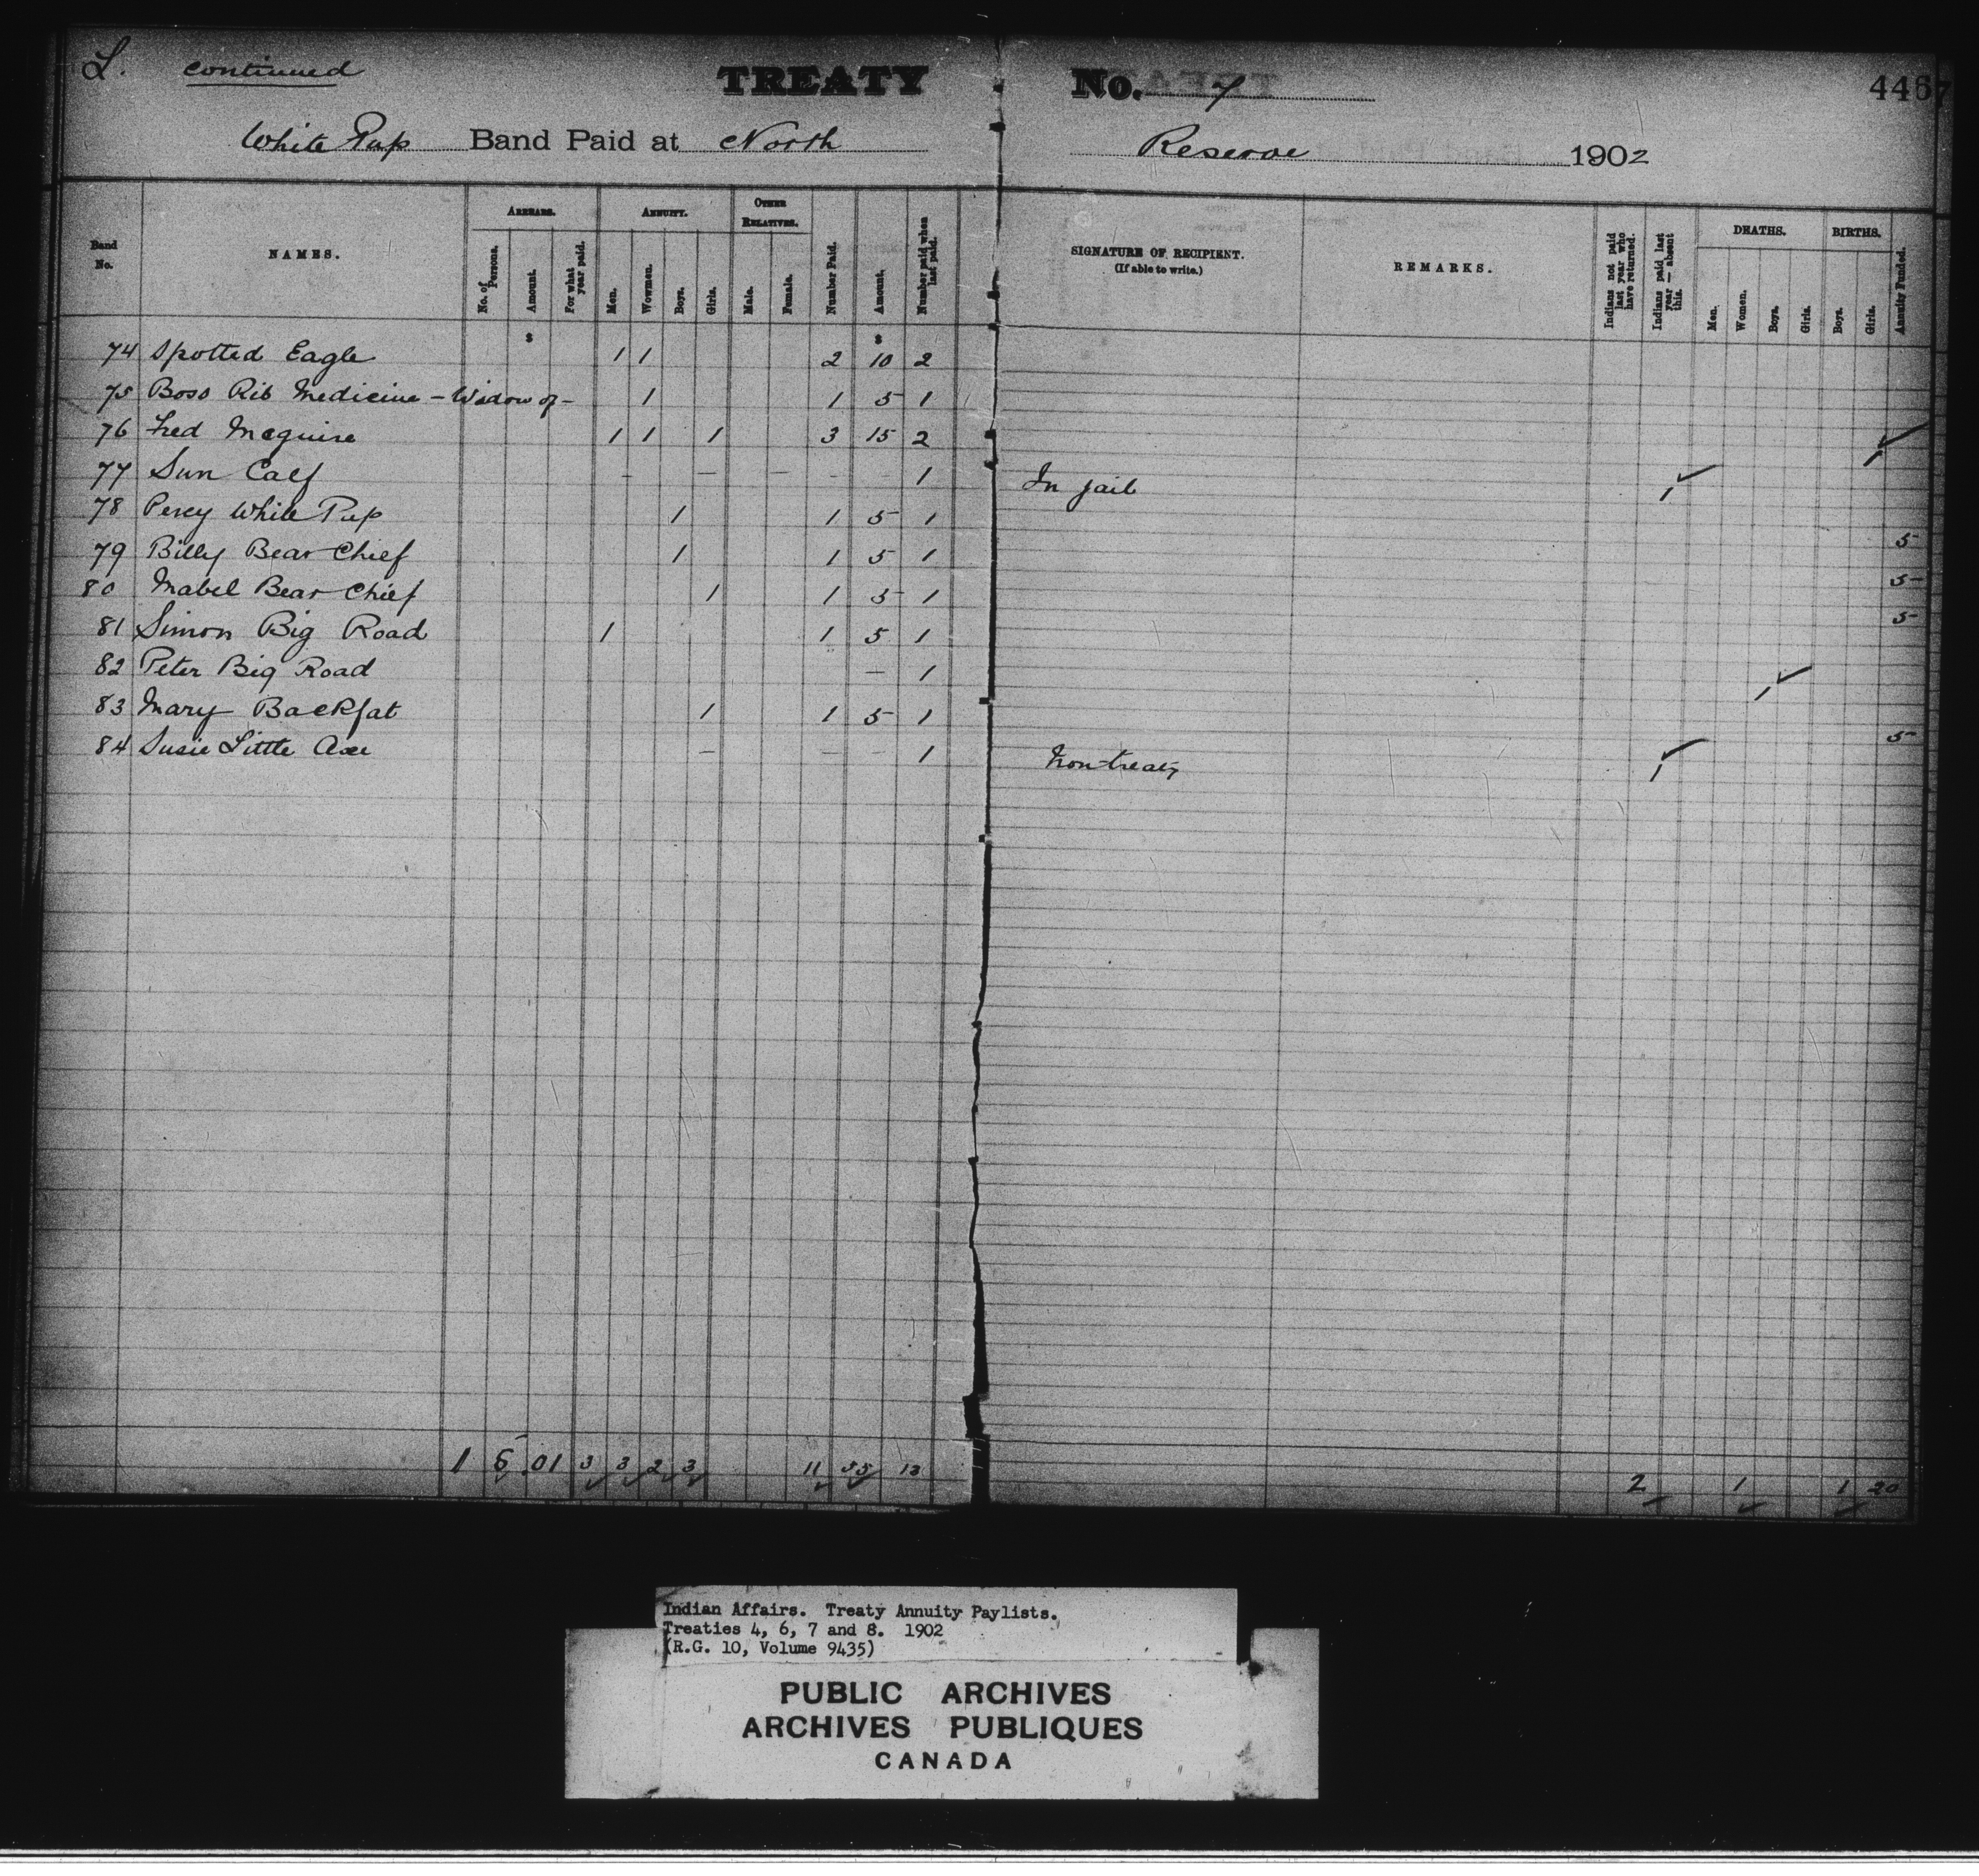 L. continued TREATY No. 7 4457
White Pup Band Paid at North Reserve 1902
Band No. NAMES. ARREARS. No. of Persons. Amount. For what year paid. ANNUITY. Men. Wowmen. Boys. Girls. OTHER RELATIVES. Male. Female. Number Paid. Amount. Number paid when last paid. SIGNATURE OF RECIPIENT. (If able to write.) REMARKS. Indians not paid last year who have returned. Indians paid last year — absent this. DEATHS. Men. Women. Boys. Girls. BIRTHS. Boys. Girls. Annuity Funded.
$ $
74 Spotted Eagle 1 1 2 10 2
75 Boss Rib Medicine - Widow of - 1 1 5 1
76 Fred Mcguire 1 1 1 3 15 2 1 ✓
77 Sun Calf - - - - - 1 In jail 1 ✓
78 Percy White Pup 1 1 5 1 5
79 Billy Bear Chief 1 1 5 1 5
80 Mabel Bear Chief 1 1 5 1 5
81 Simon Big Road 1 1 5 1
82 Peter Big Road - 1 1 ✓
83 Mary Backfat 1 1 5 1 5
84 Susie Little Axe - - - 1 Non-treaty 1 ✓
1 5 01 3 3 2 3 11 55 13 2 1 1 20
Indian Affairs. Treaty Annuity Paylists.
Treaties 4, 6, 7 and 8. 1902
(R.G. 10, Volume 9435)
PUBLIC ARCHIVES
ARCHIVES PUBLIQUES
CANADA